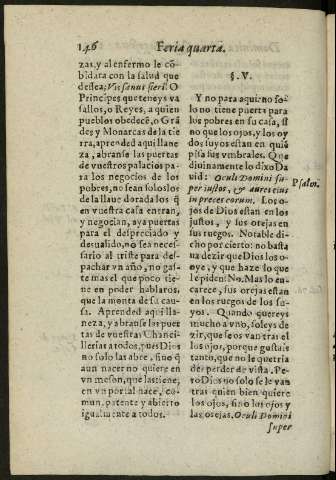 146
Feria quarta.
zas, y al enfermo le cõ
bidara con la salud que
dessea; Vis sanus fieri. O
Principes que teneys va
sallos, o Reyes, a quien
pueblos obedecẽ, o Grã
des, y Monarcas de la tie
rra, aprended aqui llane
za, abranse las puertas
de vuestros palacios pa
ra los negocios de los
pobres, no sean solos los
de la llaue dorada los q̃
en vuestra casa entran,
y negocian, aya puertas
para el despreciado y
desualido, no sea neces-
sario al triste para des-
pachar vn año, no gas-
te mas el poco que tie-
ne en poder hablaros,
que la monta de su cau-
sa. Aprended aqui lla-
neza, y abranse las puer
tas de vuestras Chanci-
llerias a todos, pues Dios
no solo las abre, sino q̃
aun nacer no quiere en
vn meson, que las tiene,
en vn portal nace, co-
mun, patente y abierto
igualmente a todos.
§. V.
Y no para aqui: no so-
lo no tiene puerta para
los pobres en su casa, si
no que los ojos, y los oy
dos suyos estan en quiẽ
pisa sus vmbrales. Que
diuinamente lo dixo Da
uid: Oculi Domini su-
per iustos, & aures eius
in preces eorum. Los o-
jos de Dios estan en los
justos, y los orejas en
sus ruegos. Notable di-
cho por cierto: no basta
ua dezir que Dios los o-
oye, y que haze lo que
le piden? No. Mas lo en-
carece, sus orejas estan
en los ruegos de los su-
yos. Quando quereys
mucho a vno, soleys de
zir, que se os van tras el
los ojos, porque gustais
tanto, que no le querria
des perder de vista. Pe-
ro Dios no solo se le van
tras quien bien quiere
los ojos, sino los ojos y
las orejas. Oculi Domini
super
Psalm.